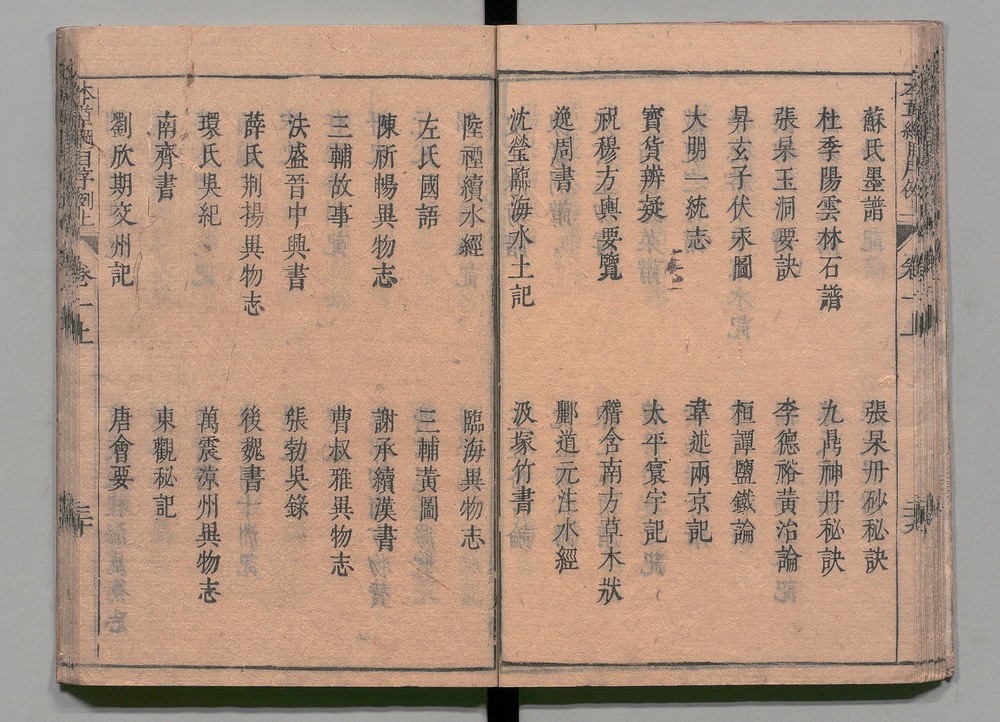 蘇氏墨譜
張杲丹砂秘訣
杜季陽雲林石譜
九鼎神丹秘訣
張杲玉洞要訣
李德裕黃冶論
昇玄子伏汞圖
桓譚鹽鐵論
大明一統志
韋述兩京記
寶貨辨疑
太平寰宇記
祝穆方輿要覽
稽含南方草木狀
逸周書
酈道元注水經
沈瑩臨海水土記
汲冢竹書
陸禋續水經
臨海異物志
左氏國語
三輔黃圖
陳祈暢異物志
謝承續漢書
三輔故事
曹叔雅異物志
法盛晉中興書
張勃吳錄
薛氏荆揚異物志
後魏書
環氏吳紀
萬震涼州異物志
南齊書
東觀秘記
劉欣期交州記
唐會要
本草綱目序例上
卷一上